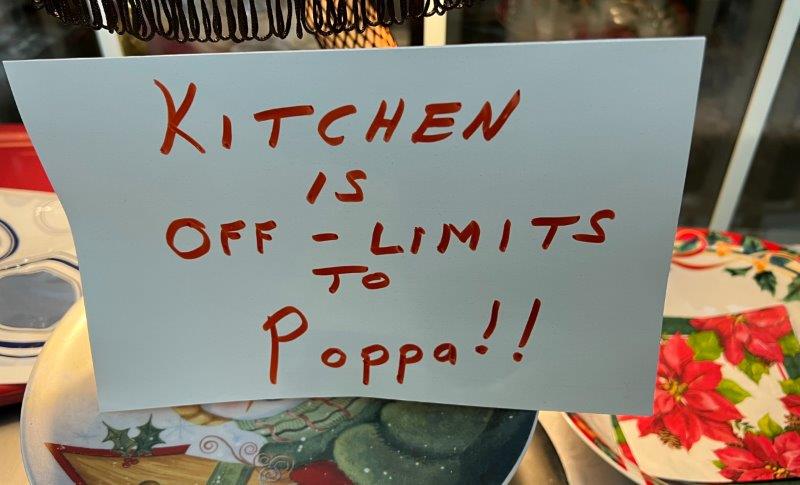 KITCHEN
IS
OFF - LIMITS
TO
Poppa!!